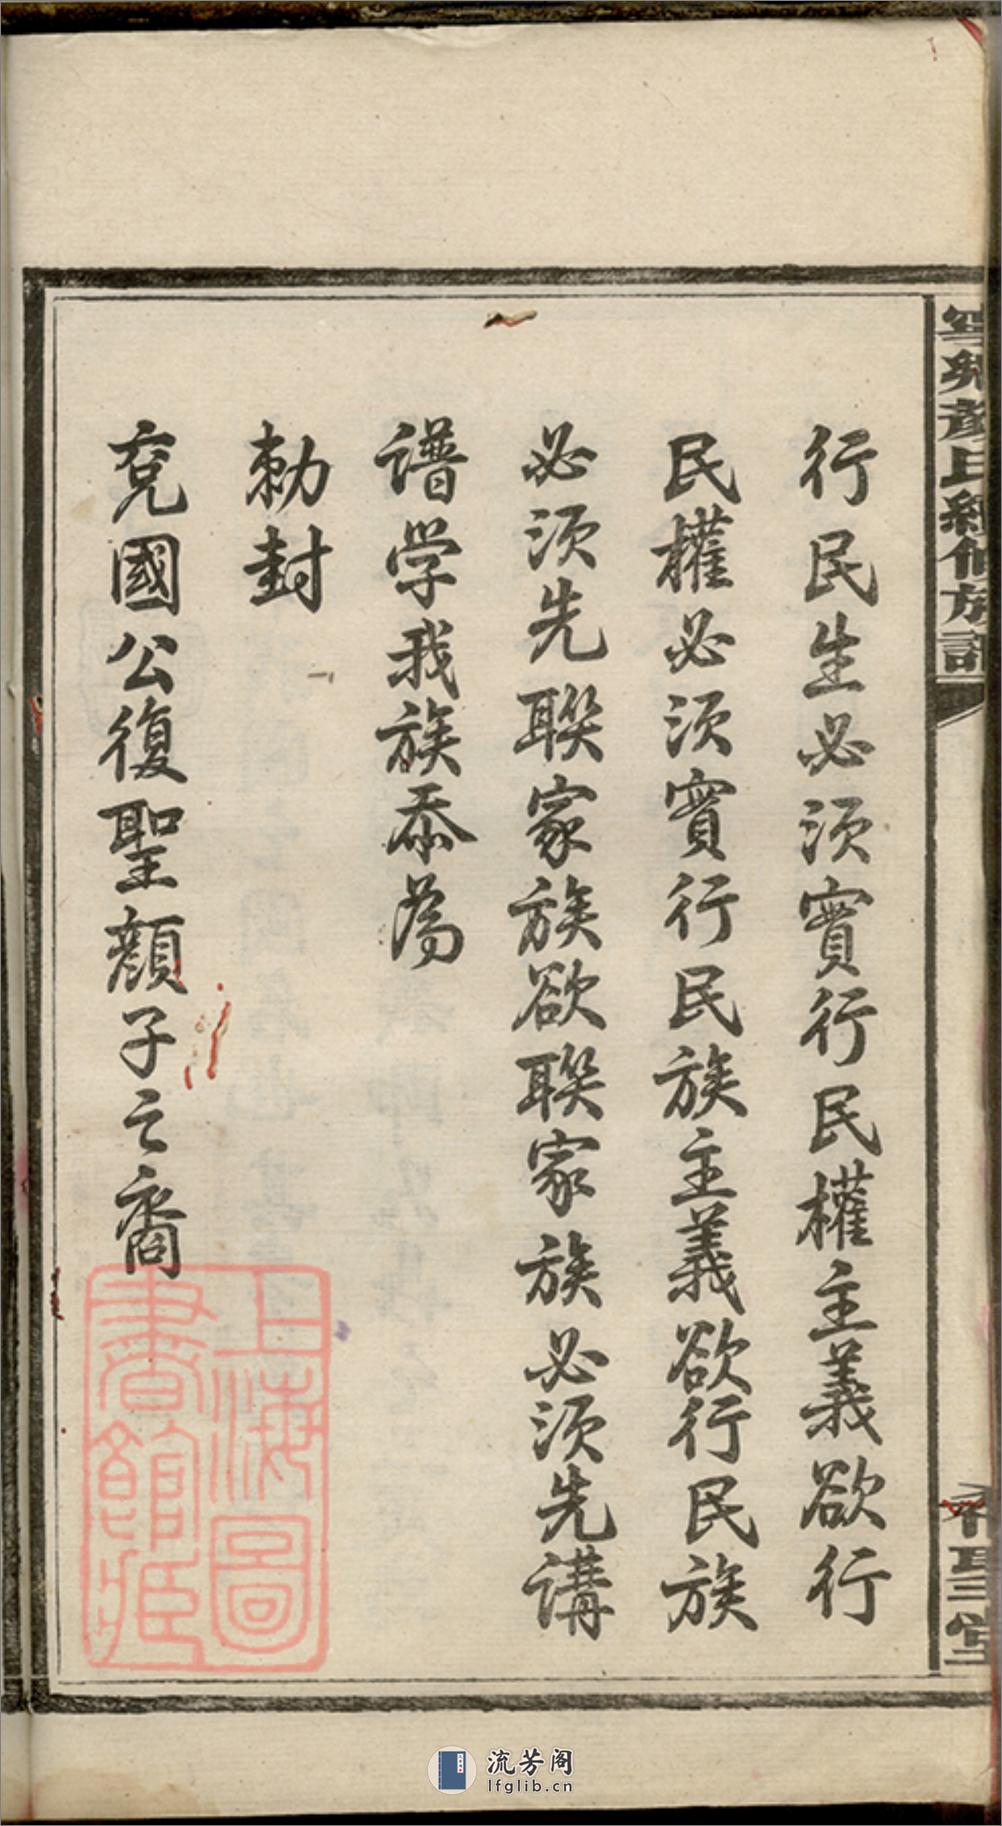 行民生必须實行民權主義欲行
民權必须實行民族主義欲行民族
必须先聯家族欲聯家族必须先講
谱学我族忝為
勅封
兗國公復聖顏子之裔
上海圖
書館藏
流芳阁
lfglib.cn